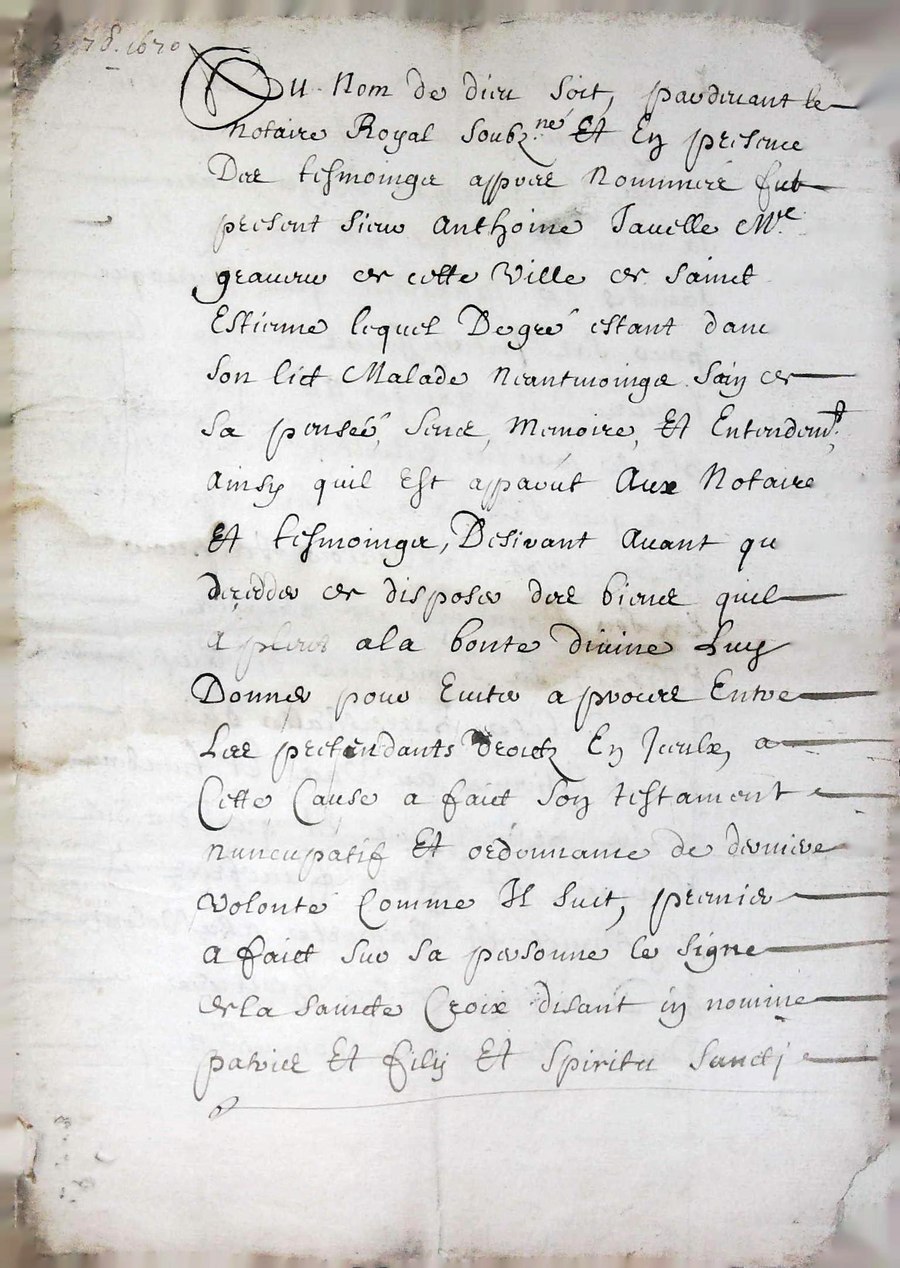 1670
Au Nom de dieu soit, pardeuant le
Notaire Royal soubz.né Et En presence
Des tesmoings appres Nommés fut
present sieur Anthoine Tauelle Mre
graueur de cette Ville de Sainct
Estienne lequel De gré estant dans
son lict Malade Neantmoings sain de
sa pensée, sens, Memoire, Et Entendemt
Ainsy quil Est apparut Aux Notaire
Et tesmoings, Desirant Auant que
de disposer des biens quil
A pleut a la bonte diuine Luy
Donner pour Euiter a proces Entre
Les pretendants droictz En Jceulx, a
Cette Cause a faict son testament
nuncupatif Et ordonnance de derniere
volonté Comme Il suit, premier
A faict sur sa personne le signe
de la saincte Croix disant in nomine
patris Et filij Et spiritu sanctj